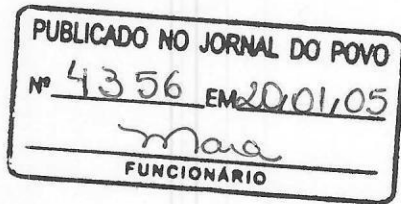 PUBLICADO NO JORNAL DO POVO
Nº 4356 EM 20/01/05
Mara
FUNCIONÁRIO